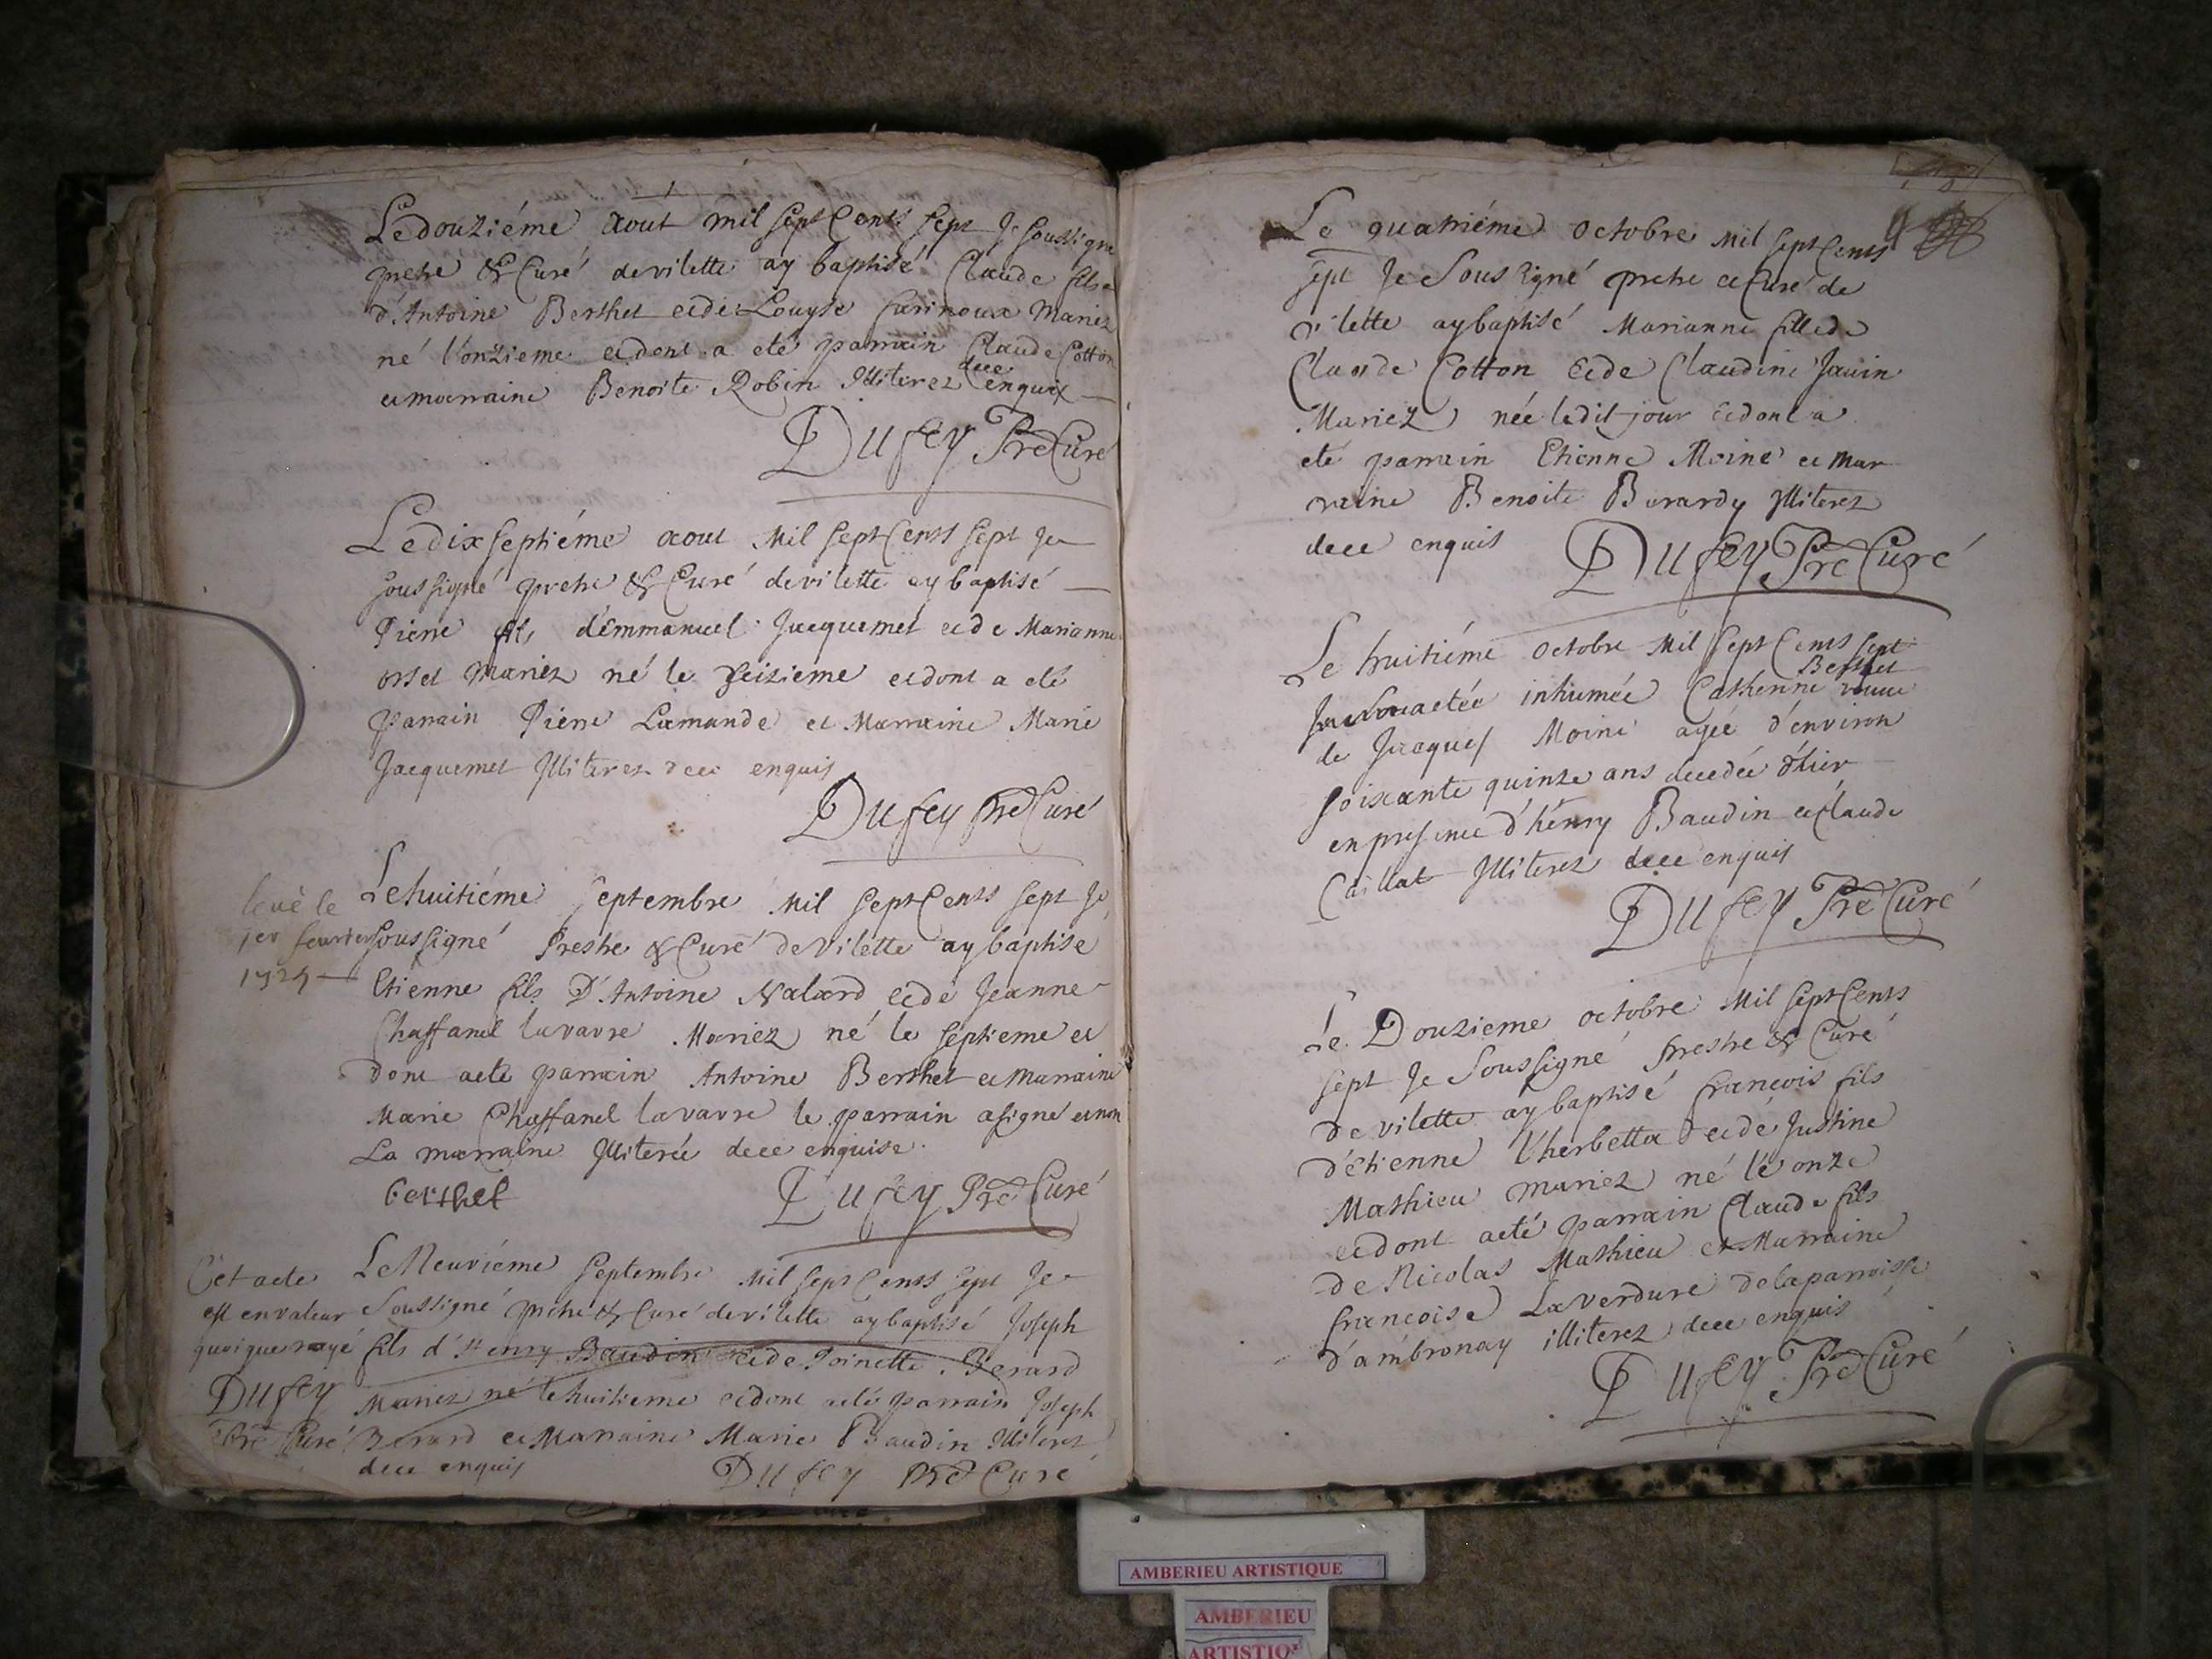 Le douziéme aout mil sept Cents sept Je soussigné
pretre & Curé de vilette ay baptisé Claude fils
d'Antoine Berthet et de Louyse Mariez
né l'onzieme et dont a eté parrain Claude Cotton
et marraine Benoite Robin Illiterez de ce enquix
Dufey Pre Curé
Le dix septiéme aout Mil sept Cents sept Je
soussigné pretre & Curé de vilette ay baptisé
Pierre fils d'Emmanuel Jacquemet et de Marianne
orset Mariez né le seizieme et dont a eté
parrain Pierre Lamande et Marraine Marie
Jacquemet Illiterez de ce enquis
Dufey Pre Curé
levé le
1er fevrier
Le huitiéme septembre Mil sept Cents sept Je
soussigné Prestre & Curé de Vilette ay baptisé
Etienne fils D'Antoine Nalard et de Jeanne
Chaffanel lavavre Mariez né le septieme et
dont a eté parrain Antoine Berthet et Marraine
Marie Chaffanel lavavre le parrain a signé et non
La marraine Illiterée de ce enquise
berthet
Dufey Pre Curé
Cet acte
est en valeur
quoique rayé
Dufey
Pre Curé
Le Neuviéme septembre Mil sept Cents sept Je
soussigné pretre & Curé de vilette ay baptisé Joseph
fils d'Henry Baudin et de Poinette Berard
Mariez né le huitieme et dont a eté parrain Joseph
Berard et Marraine Marie Baudin Illiterez
de ce enquis
Dufey Pre Curé
Le quatriéme octobre Mil sept Cents
sept Je Soussigné pretre et Curé de
vilette ay baptisé Marianne fille de
Claude Cotton et de Claudine Javin
Mariez née ledit jour et dont a
eté parrain Etienne Moine et Mar
raine Benoite Berardy Illiterez
de ce enquis
Dufey Pre Curé
Le huitiéme octobre Mil sept Cents sept
a etée inhumée Catherine Berthet veuve
de Jacques Moine agée d'environ
soixante quinze ans decedée d'hier
en presence d'hénry Baudin et Claude
Caillat Illiterez de ce enquis
Dufey Pre Curé
Le Douzieme octobre Mil sept Cents
sept Je Soussigné Prestre & Curé
de vilette ay baptisé francois fils
d'étienne l'herbetta et de Justine
Mathieu mariez né le onze
et dont a eté parrain Claude fils
de Nicolas Mathieu et Marraine
francoise Laverdure de la parroisse
d'ambronay illiterez de ce enquis
Dufey Pre Curé
AMBERIEU ARTISTIQUE
AMBERIEU
ARTISTIQ